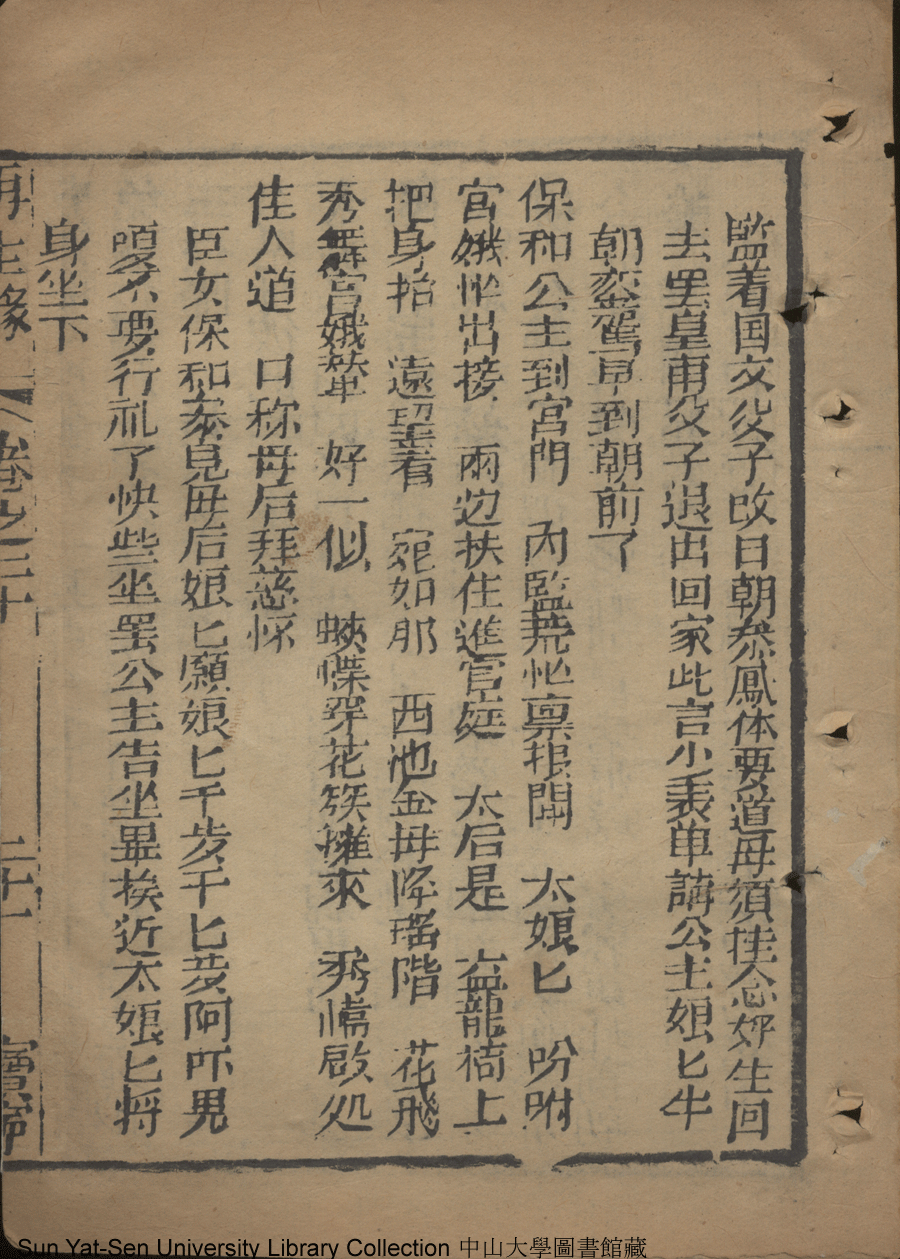 監着国丈父子改日朝叅鳳体要道毋須挂念好生回
去罢皇甫父子退出回家此言小表单講公主娘匕牛
朝来驾車到朝前了
保和公主到宮門 内監荒忙禀报聞 太娘匕 吩咐
宫娥忙出接 兩边扶住進宫庭 太后是 盘龍椅上
把身抬 遠望着 宛如那 西池金母降瑤階 花飛
秀舞宫娥輦 好一似 蛱蝶穿花簇擁來 秀幃啟処
佳人道 口称母后拜慈怀
臣女保和叅見母后娘匕願娘匕千歩千匕歩阿吓男
嗄不要行礼了快些坐罢公主告坐畢挨近太娘匕将
身坐下
再生缘 卷之二十 二十一
Sun Yat-Sen University Library Collection 中山大學圖書館藏